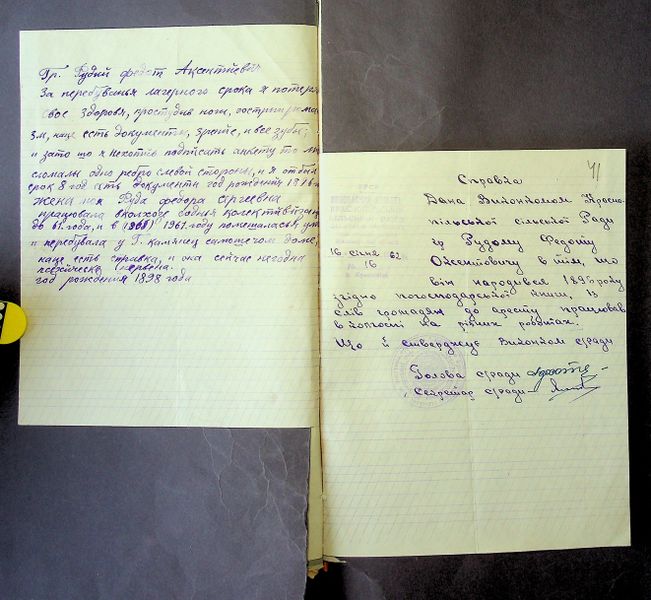 Гр. Рудий федот Аксентиевич
За перебуванья лагерного срока я потеря
свое здоровя, простудив ноги,
зм, наце есть документы, зрение, и все зубы;
и зато що я нехотив подписать анкету то мне
сломалы одно ребро слевой стороны, и я отбил
срок 8 год есть документи год рождения
жена моя Руда федора сергеевна
працювала вколхозе содня колективизации
до 61. года, и в 1961 году помешалась в ум
и перебувала у Г. камянец сумашечом доме,
наце есть справка, и она сейчас негодна
психическа нервена.
год рождения 1898 года
41
Справка
Дана Виконкомом Красно-
пільської сільської Ради
гр Рудому Федоту
Оксентовичу в тім, що
16 січня 62
№ 16
він народився 1896 року
згідно погосподарської книги, із
слів громадян до аресту працював
в колгоспі на різних роботах.
Що й стверджує Виконком с/ради
Голова с/ради
Секретар с/ради